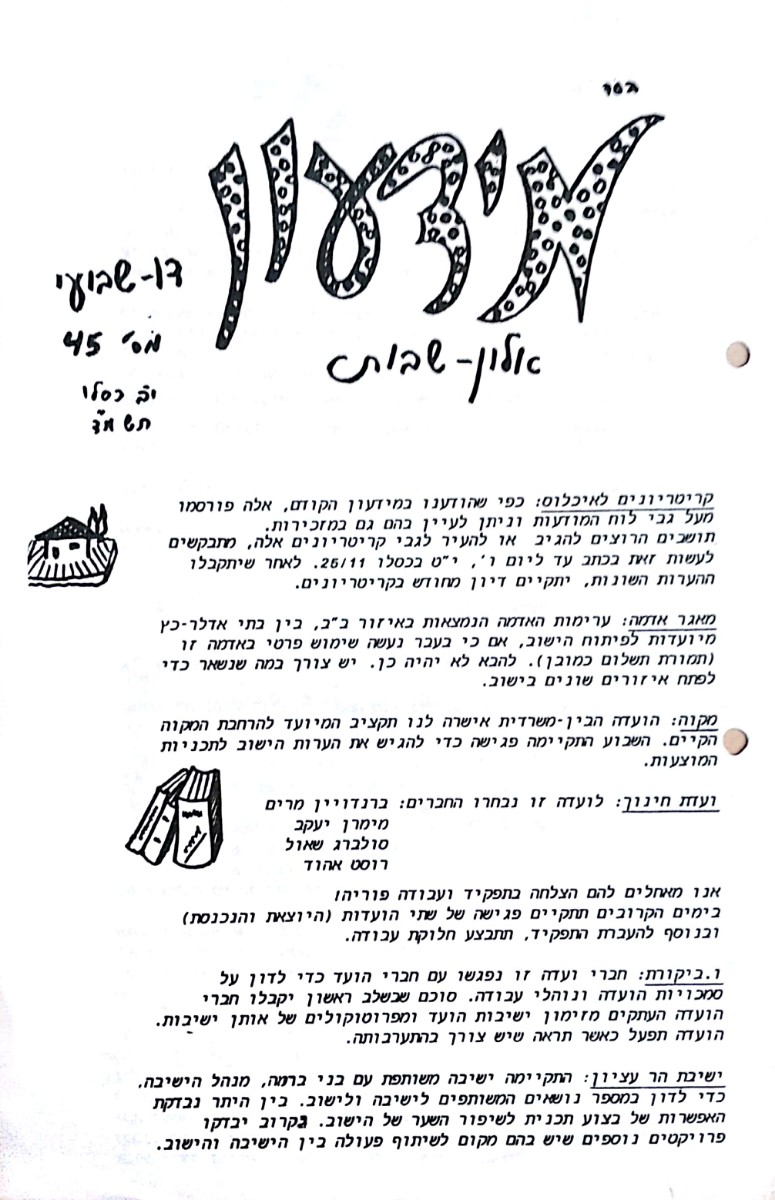 בסד
מידעון
דו-שבועי
מס' 45
י"ב כסלו
תשמ"ד
אלון-שבות
קריטריונים לאיכלוס: כפי שהודענו במידעון הקודם, אלה פורסמו
מעל גבי לוח המודעות וניתן לעיין בהם גם במזכירות.
תושבים הרוצים להגיב או להעיר לגבי קריטריונים אלה, מתבקשים
לעשות זאת בכתב עד ליום ו', י"ט בכסלו 25/11. לאחר שיתקבלו
ההערות השונות, יתקיים דיון מחודש בקריטריונים.
מאגר אדמה: ערימות האדמה הנמצאות באיזור ב"ב, בין בתי אדלר-כץ
מיועדות לפיתוח הישוב, אם כי בעבר נעשה שימוש פרטי באדמה זו
(תמורת תשלום כמובן). להבא לא יהיה כן. יש צורך במה שנשאר כדי
לפתח איזורים שונים בישוב.
מקוה: הועדה הבין-משרדית אישרה לנו תקציב המיועד להרחבת המקוה
הקיים. השבוע התקיימה פגישה כדי להגיש את הערות הישוב לתכניות
המוצעות.
ועדת חינוך: לועדה זו נבחרו החברים: ברנדויין מרים
מימרן יעקב
סולברג שאול
רוסט אהוד
אנו מאחלים להם הצלחה בתפקיד ועבודה פוריה!
בימים הקרובים תתקיים פגישה של שתי הועדות (היוצאת והנכנסת)
ובנוסף להעברת התפקיד, תתבצע חלוקת עבודה.
ו.ביקורת: חברי ועדה זו נפגשו עם חברי הועד כדי לדון על
סמכויות הועדה ונוהלי עבודה. סוכם שבשלב ראשון יקבלו חברי
הועדה העתקים מזימון ישיבות הועד ומפרוטוקולים של אותן ישיבות.
הועדה תפעל כאשר תראה שיש צורך בהתערבותה.
ישיבת הר עציון: התקיימה ישיבה משותפת עם בני ברמה, מנהל הישיבה.
כדי לדון במספר נושאים המשותפים לישיבה ולישוב. בין היתר נבדקת
האפשרות של בצוע תכנית לשיפור השער של הישוב. בקרוב יבדקו
פרויקטים נוספים שיש בהם מקום לשיתוף פעולה בין הישיבה והישוב.